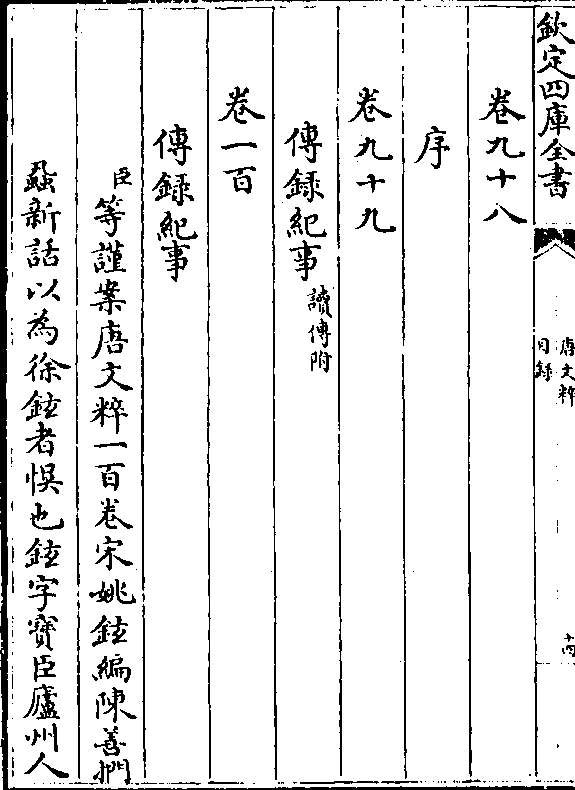 欽定四庫全書
唐文粹
目録
十四
卷九十八
序
卷九十九
傳録紀事讀傳附
卷一百
傳録紀事
臣等謹案唐文粹一百卷宋姚鉉編陳善捫
蝨新話以為徐鉉者悞也鉉字寶臣廬州人